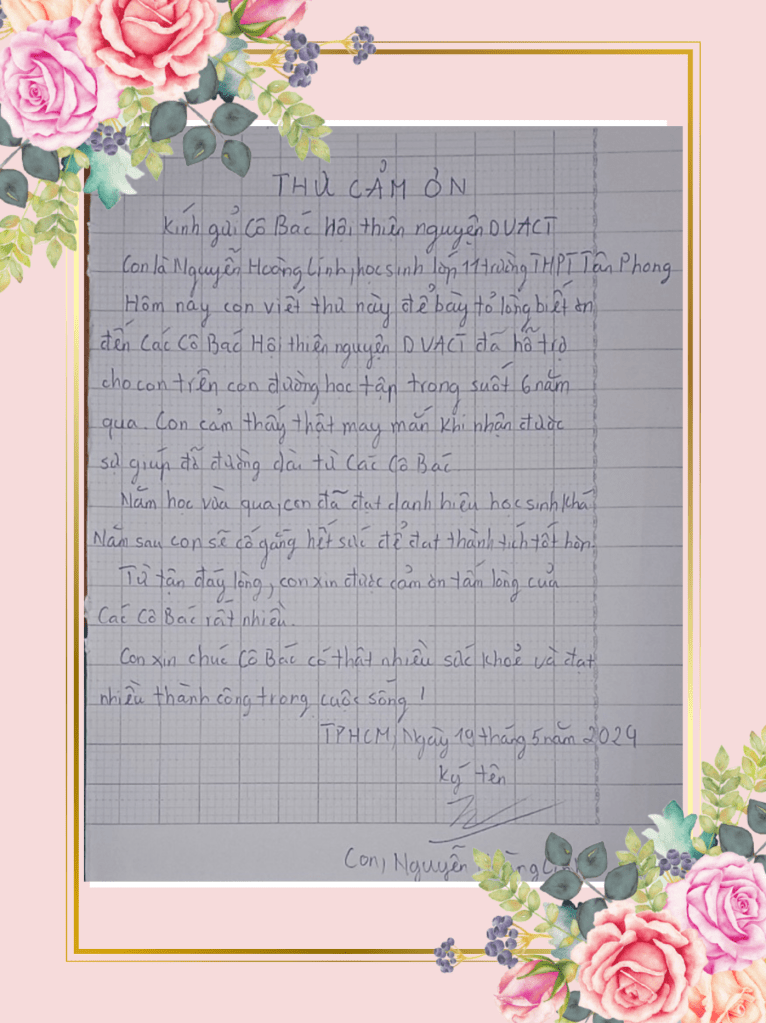 THƯ CẢM ƠN
Kính gửi Cô Bác Hội thiện nguyện DVACT
Con là Nguyễn Hoàng Linh, học sinh lớp 11 trường THPT Tân Phong
Hôm nay con viết thư này để bày tỏ lòng biết ơn
đến Các Cô Bác Hội thiện nguyện DVACT đã hỗ trợ
cho con trên con đường học tập trong suốt 6 năm
qua. Con cảm thấy thật may mắn khi nhận được
sự giúp đỡ đường dài từ Các Cô Bác
Năm học vừa qua, con đã đạt danh hiệu học sinh khá
Năm sau con sẽ cố gắng hết sức để đạt thành tích tốt hơn.
Từ tận đáy lòng, con xin được cảm ơn tấm lòng của
Các Cô Bác rất nhiều.
Con xin chúc Cô Bác có thật nhiều sức khoẻ và đạt
nhiều thành công trong cuộc sống!
TPHCM, Ngày 19 tháng 5 năm 2024
Ký tên
Con, Nguyễn